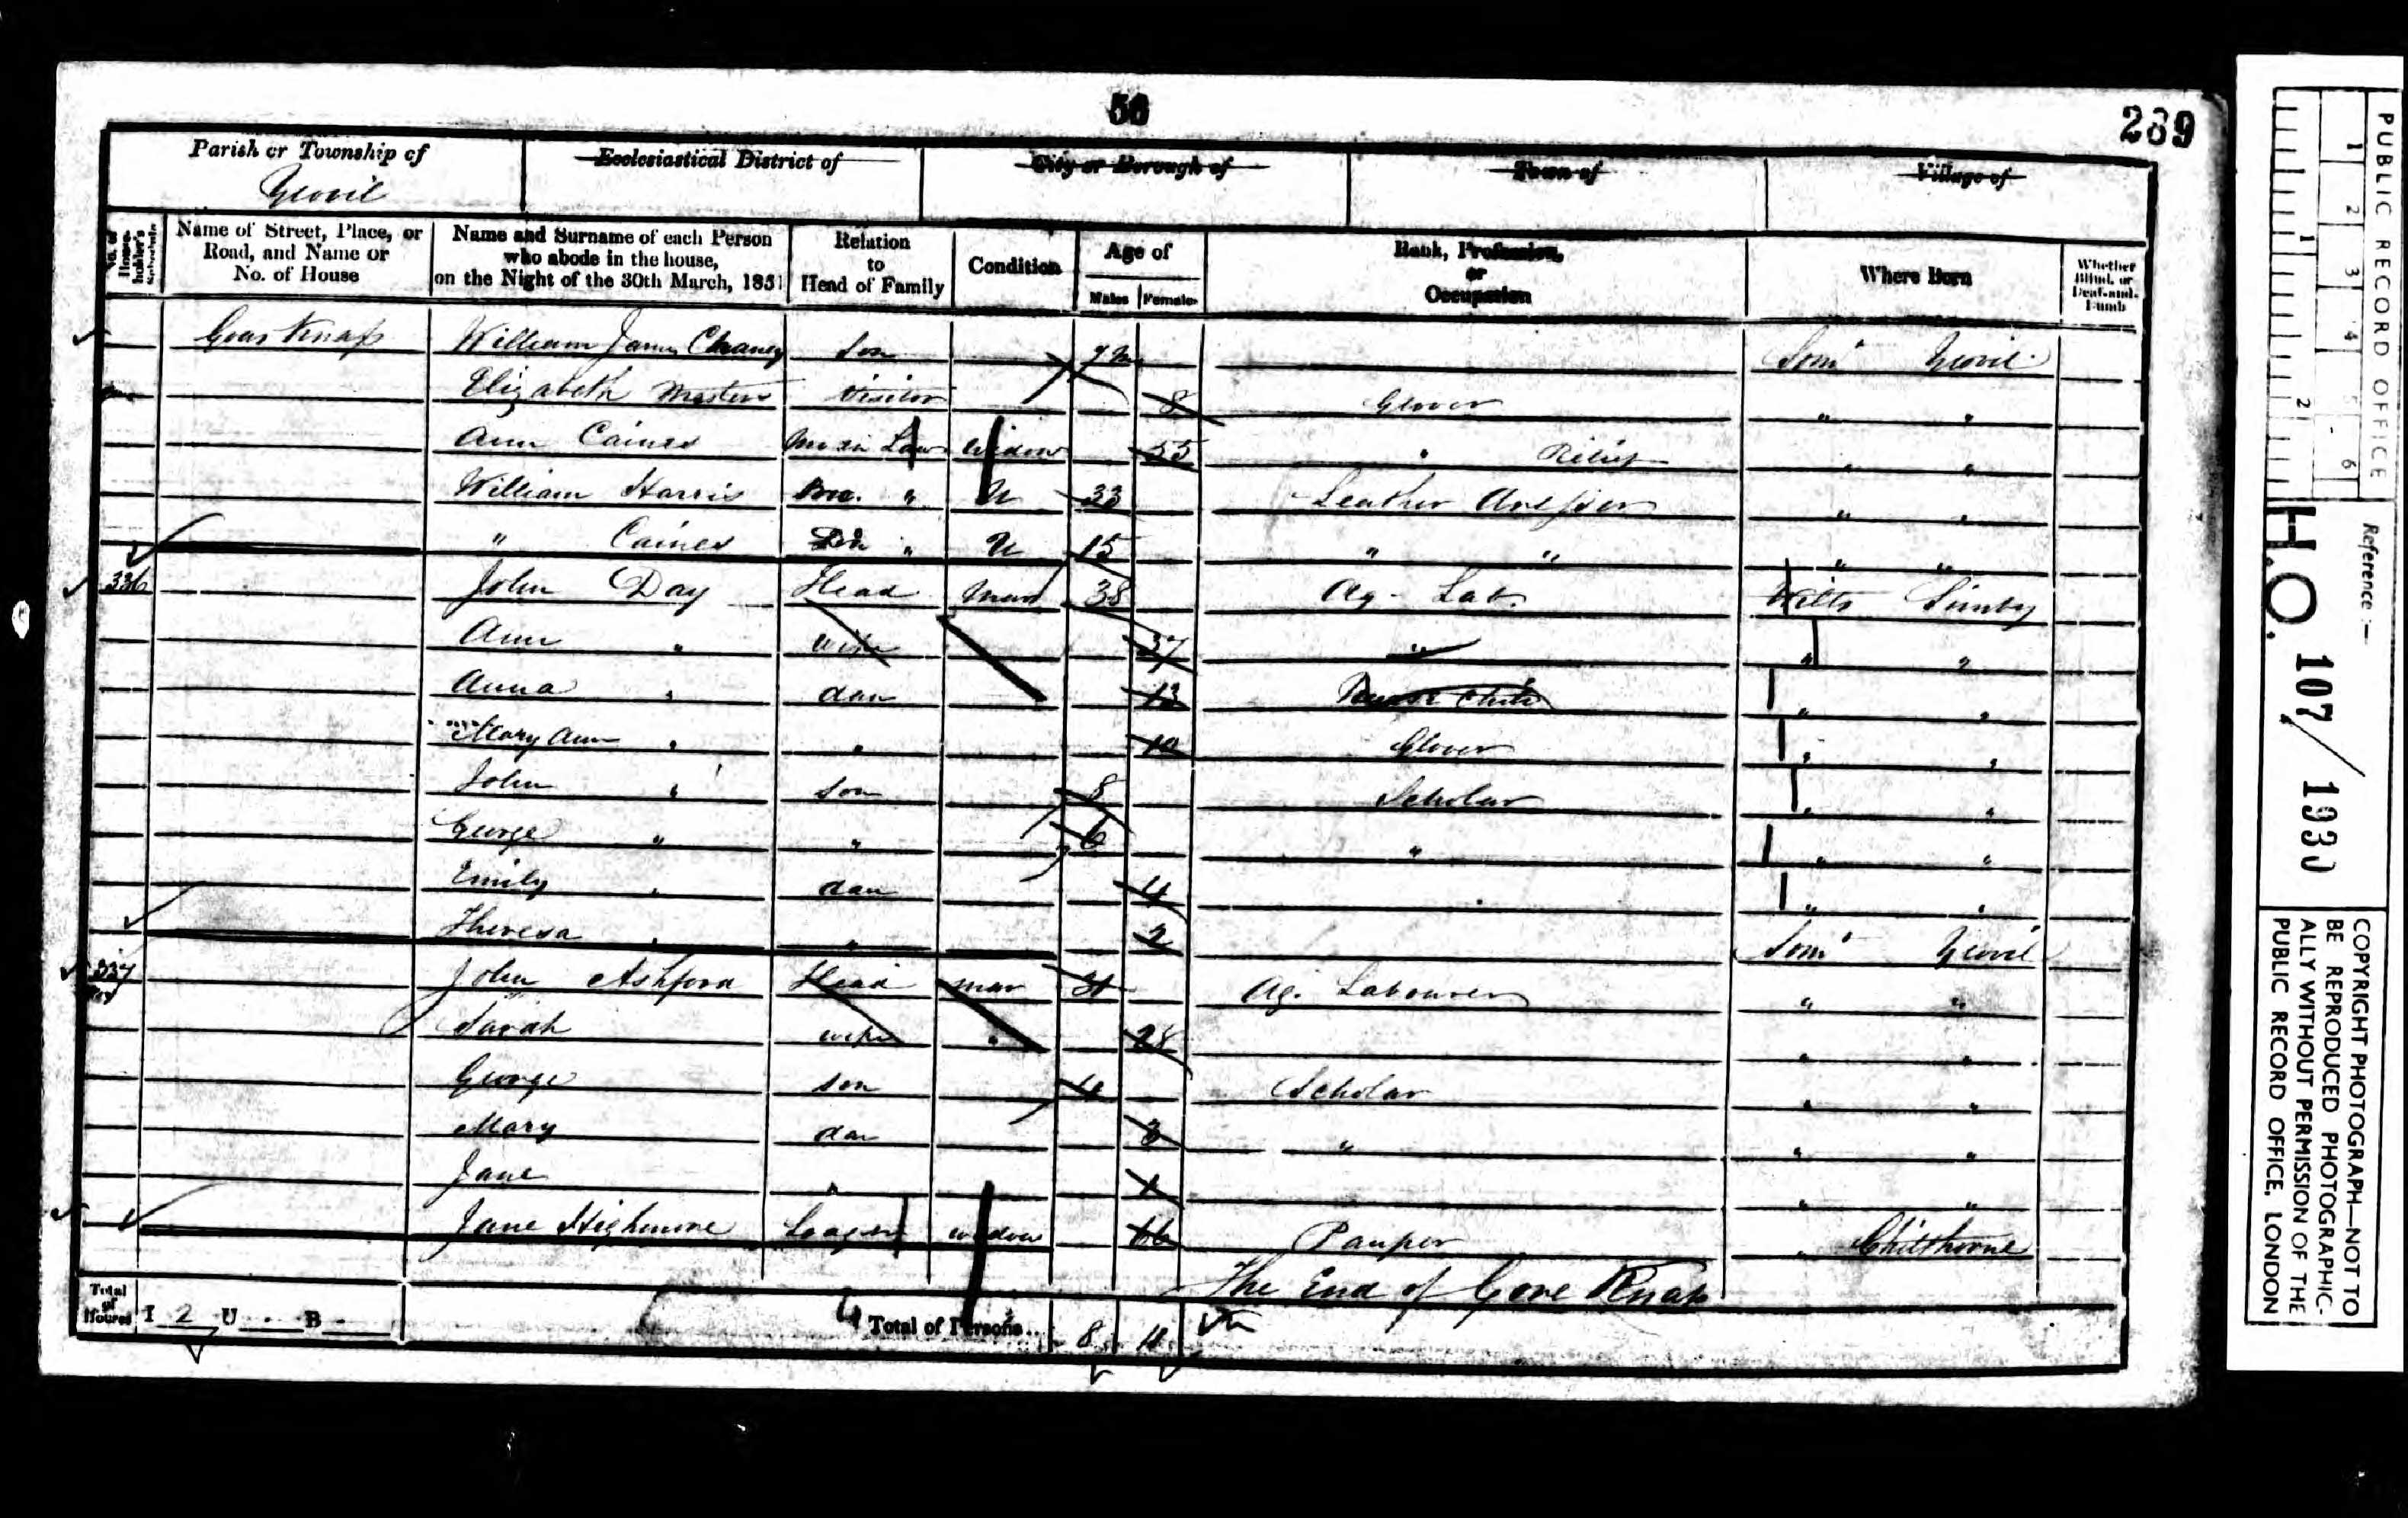 56
289
Parish or Township of
Yeovil
Ecclesiastical District of
City or Borough of
Town of
Village of
No. of House-holder's Schedule
Name of Street, Place, or Road, and Name or No. of House
Name and Surname of each Person who abode in the house, on the Night of the 30th March, 1851
Relation to Head of Family
Condition
Age of
Males
Females
Rank, Profession, or Occupation
Where Born
Whether Blind, or Deaf-and-Dumb
Goar Knap William James Chaney Son Som Yeovil
Elizabeth Masters Visitor 8 Glover " "
Ann Caines in Law Widow 55 " Relief " "
William Harris " U 33 Leather Dresser " "
" Caines " U 15 " " " "
336 John Day Head Mar 38 Ag. Lab. Wilts
Ann " wife 37 " " "
Anna " dau 13 " "
Mary Ann " " 10 Glover " "
John " son 8 Scholar " "
George " " 6 " " "
Emily " dau 4 " " "
Theresa " " 2 Som Yeovil
337 John Ashford Head mar 31 Ag. Labourer " "
Sarah wife " 28 " "
George son 4 Scholar " "
Mary dau 3 " " "
Jane " 1 " "
Jane Highmore Lodger widow 66 Pauper " Chilthorne
The End of Gore Knap
Total of Houses I 2 U - B -
Total of Persons 8 11
PUBLIC RECORD OFFICE
1 2 3 4 5 6
1 2
Reference :—
H.O. 107/1930
COPYRIGHT PHOTOGRAPH—NOT TO
BE REPRODUCED PHOTOGRAPHIC-
ALLY WITHOUT PERMISSION OF THE
PUBLIC RECORD OFFICE, LONDON